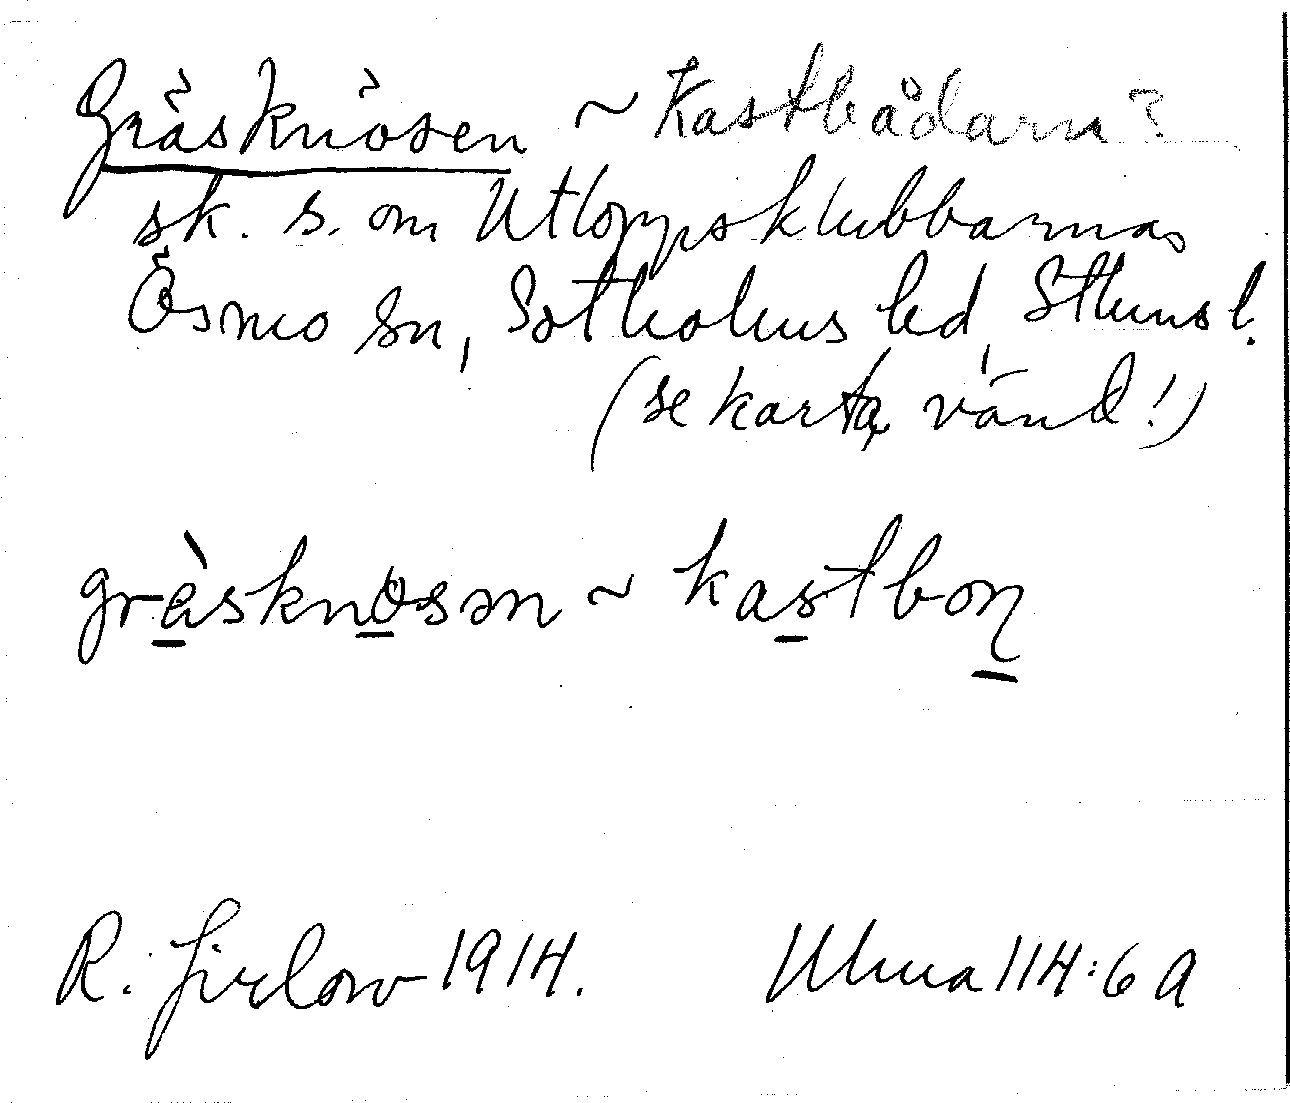 Gräsknösen ~ Kastbådarn?
sk. s. om Utloppsklubbarnas
Ösmo sn, Sotholms hd, Sthms l.
(se karta, vänd!)
gräsknösən ~ kastbon
R. Jirlow 1914. Ulma 114:6 A